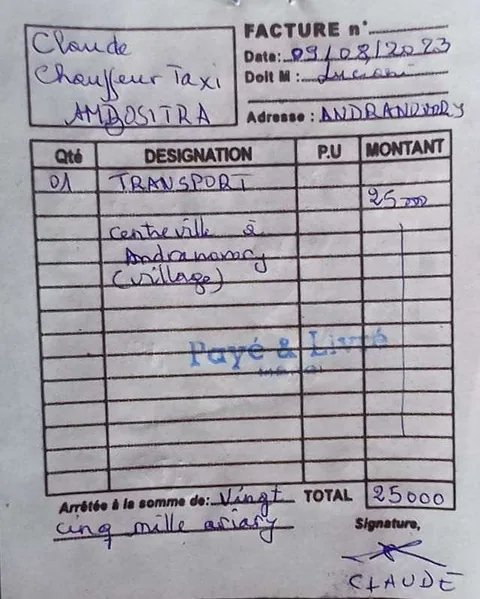 Claude
Chauffeur Taxi
AMBOSITRA
FACTURE n°
Date: 09/08/2023
Doit M :
Adresse : ANDRANOVORY
Qté DESIGNATION P.U MONTANT
01 TRANSPORT
25000
centre ville à
Andranovory
(village)
Payé & Livré
Arrêtée à la somme de: Vingt TOTAL 25000
cinq mille ariary
Signature,
CLAUDE